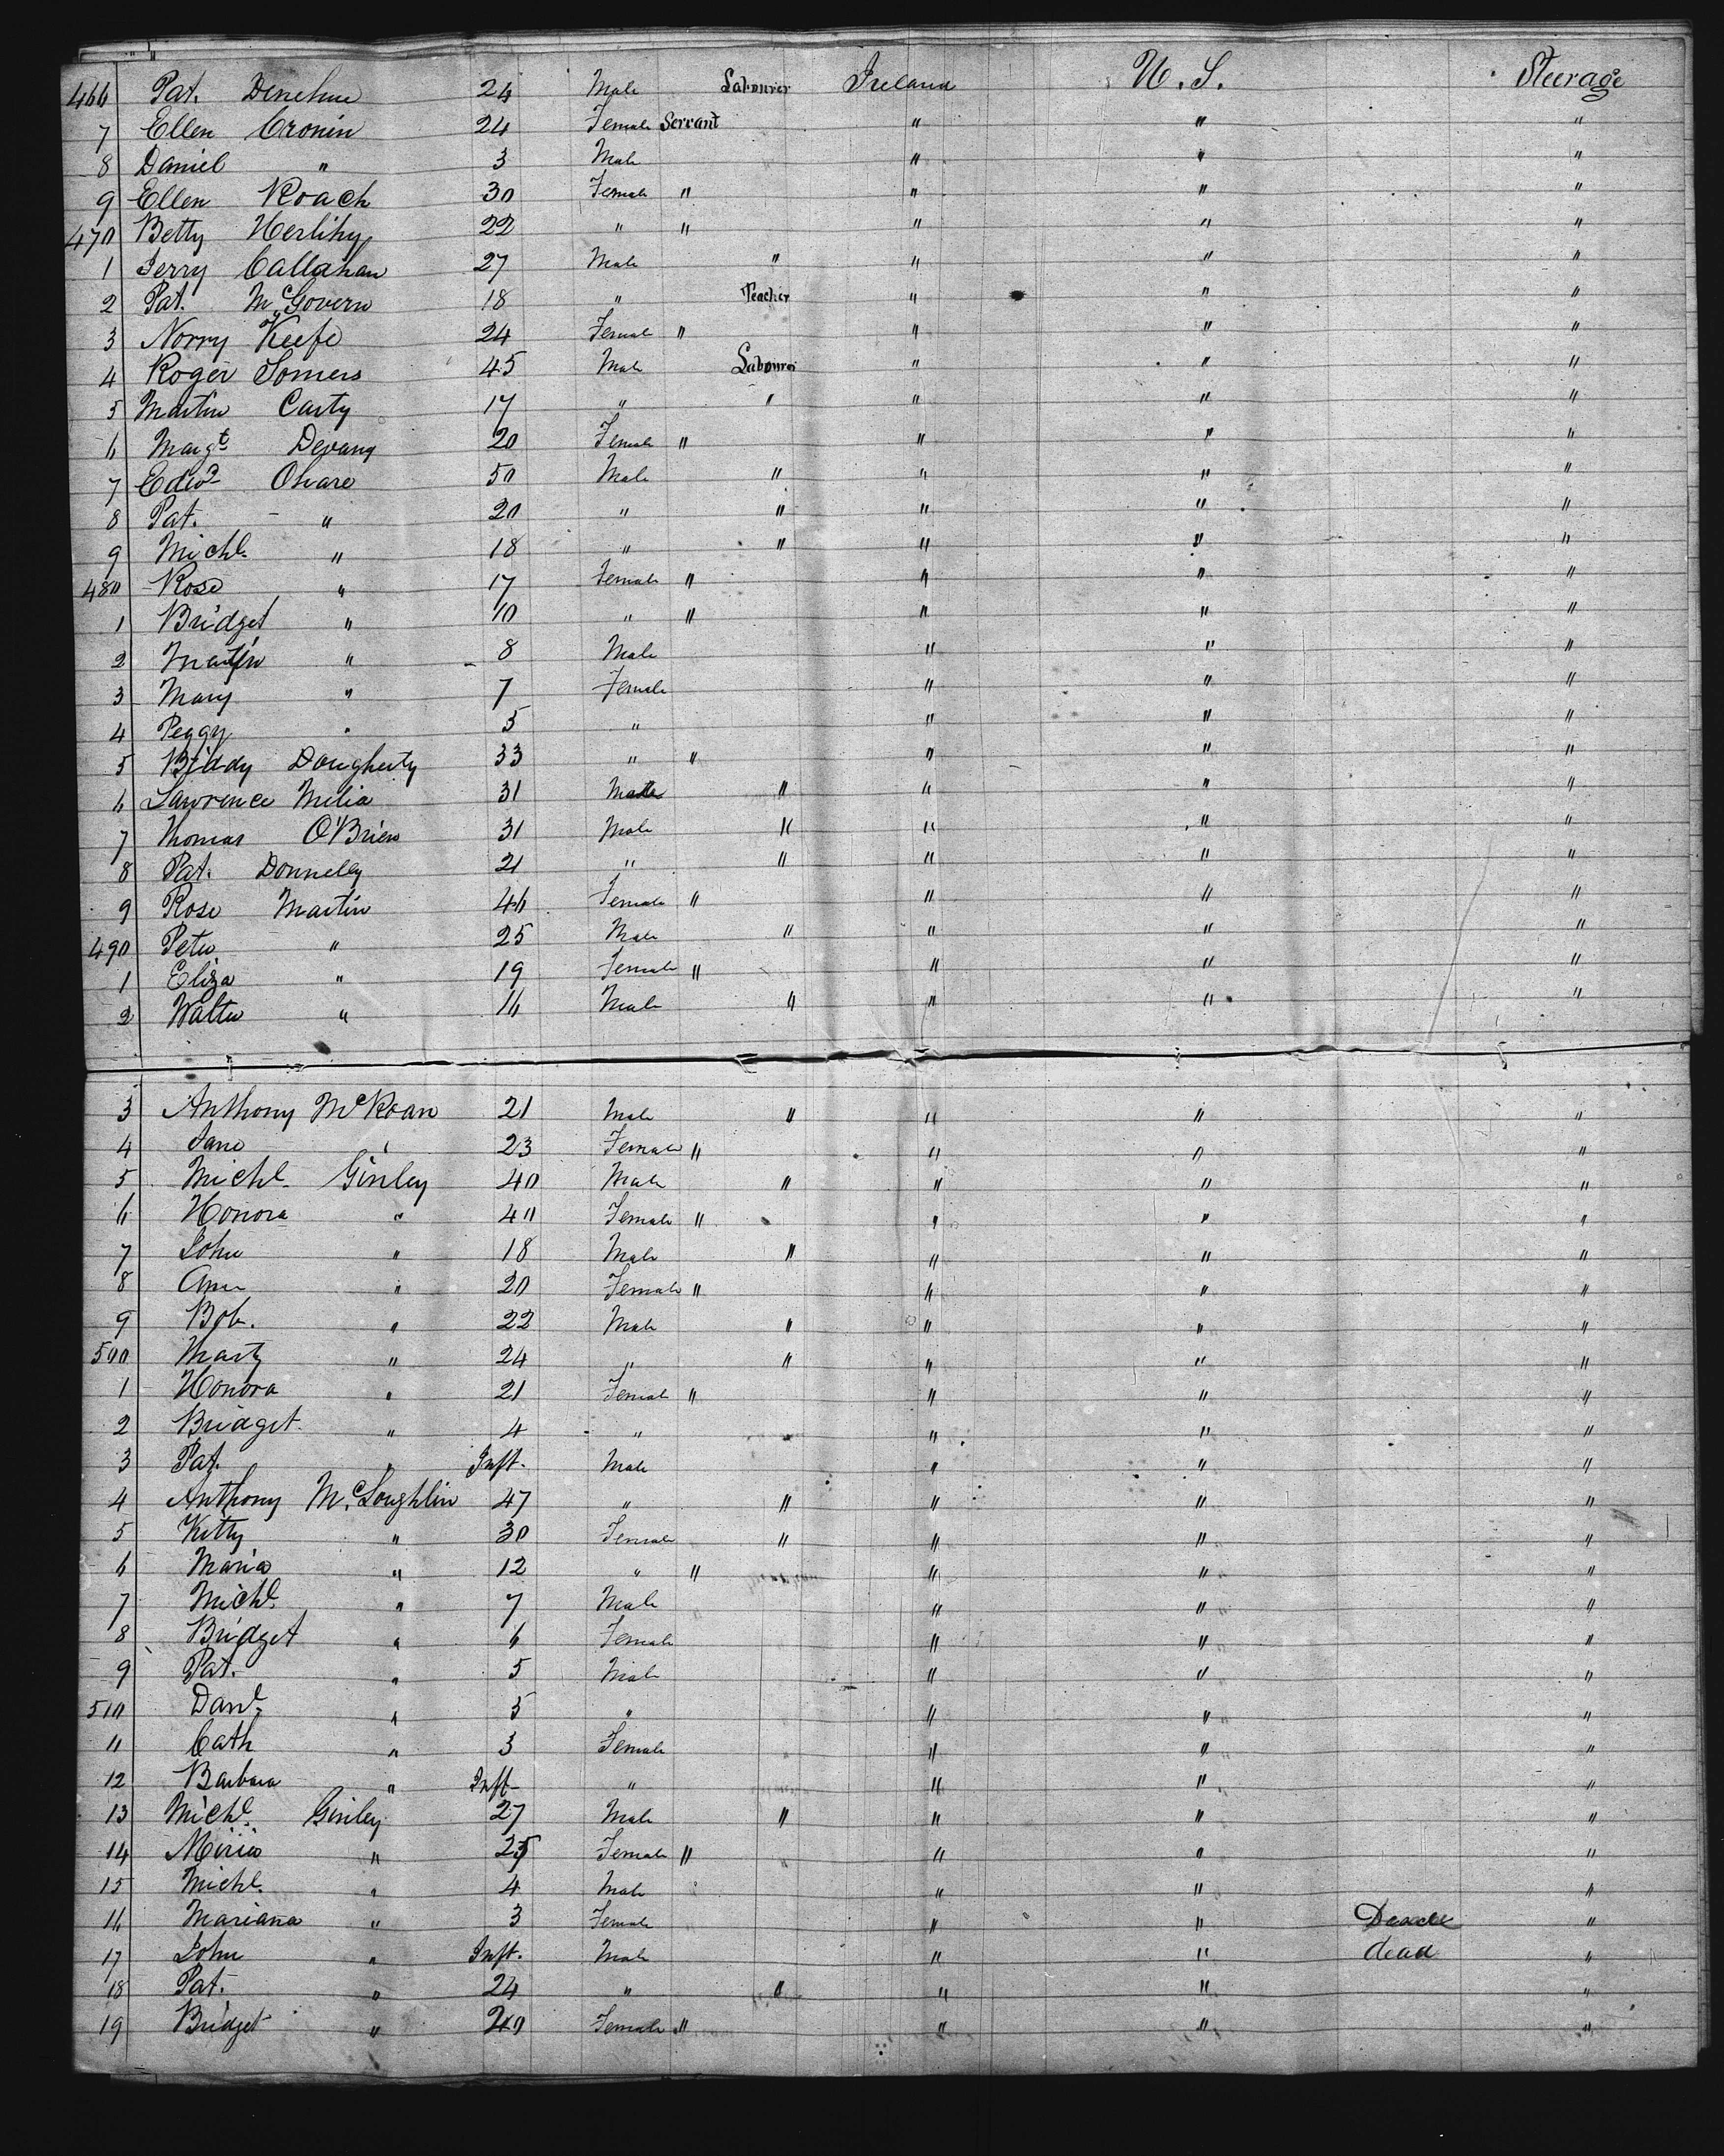 466 Pat. Denehue 24 Male Labourer Ireland U. S. Steerage
7 Ellen Cronin 24 Female Servant " " "
8 Daniel " 3 Male " " "
9 Ellen Roach 30 Female " " " "
470 Betty Herlihy 22 " " " " "
1 Jerry Callahan 27 Male " " " "
2 Pat. McGovern 18 " Teacher " " "
3 Norry Keefe 24 Female " " " "
4 Roger Somers 45 Male Labourer " " "
5 Martin Carty 17 " " " " "
6 Margt Devany 20 Female " " " "
7 Edwd Ohare 50 Male " " " "
8 Pat. " 20 " " " " "
9 Michl. " 18 " " " " "
480 Rose " 17 Female " " " "
1 Bridget " 10 " " " " "
2 Martin " 8 Male " " "
3 Mary " 7 Female " " "
4 Peggy " 5 " " " "
5 Biddy Dougherty 33 " " " " "
6 Lawrence Melia 31 Male " " " "
7 Thomas O'Brien 31 Male " " " "
8 Pat. Donnelly 21 " " " " "
9 Rose Martin 46 Female " " " "
490 Peter " 25 Male " " " "
1 Eliza " 19 Female " " " "
2 Walter " 16 Male " " " "
3 Anthony McKoan 21 Male " " " "
4 Jane " 23 Female " " " "
5 Michl. Ginley 40 Male " " " "
6 Honora " 40 Female " " " "
7 John " 18 Male " " " "
8 Ann " 20 Female " " " "
9 Bob. " 22 Male " " " "
500 Marty " 24 " " " " "
1 Honora " 21 Female " " " "
2 Bridget " 4 " " " "
3 Pat. " Inft. Male " " "
4 Anthony McLoughlin 47 " " " " "
5 Kitty " 30 Female " " " "
6 Maria " 12 " " " " "
7 Michl. " 7 Male " " "
8 Bridget " 6 Female " " "
9 Pat. " 5 Male " " "
510 Danl. " 5 " " " "
11 Cath " 3 Female " " "
12 Barbara " Inft. " " " "
13 Michl. Ginley 27 Male " " " "
14 " 25 Female " " " "
15 Michl. " 4 Male " " "
16 Mariana " 3 Female " " "
17 John " Inft. Male " " dead "
18 Pat. " 24 " " " " "
19 Bridget " 20 Female " " " "